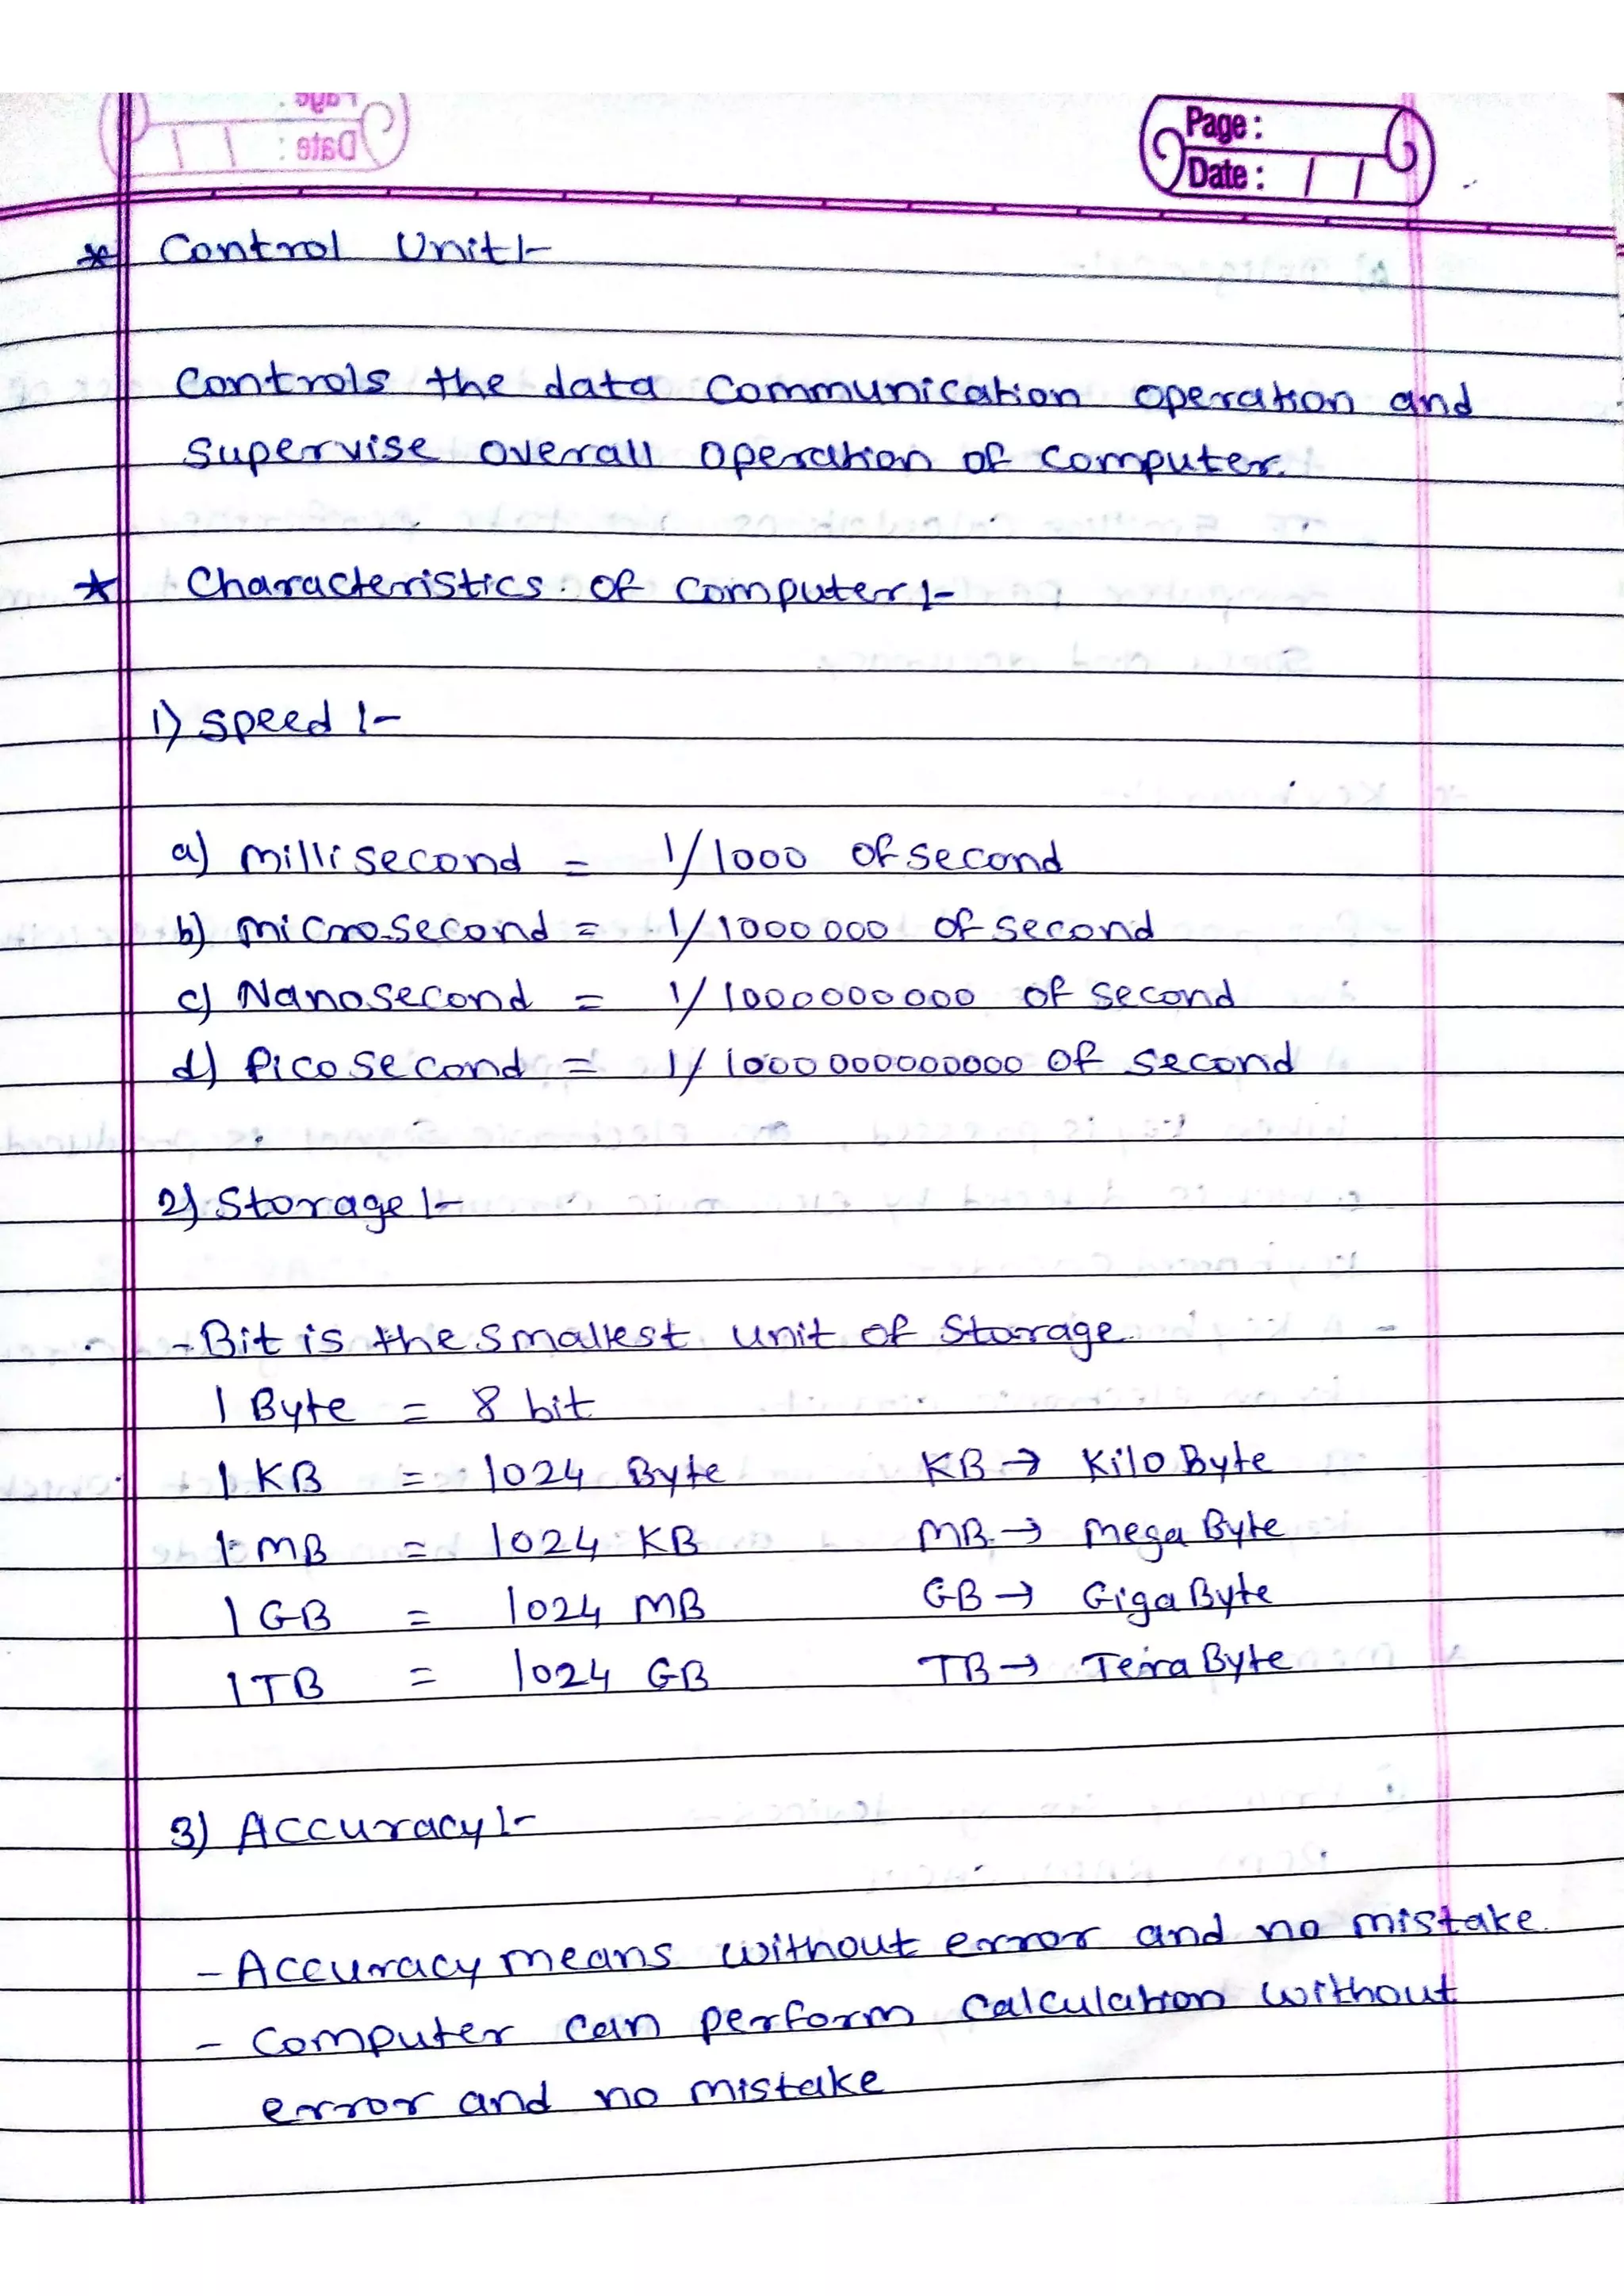 Page :
Date : / /
* Control Unit :-
Controls the data communication operation and
supervise overall operation of computer.
* Characteristics of computer :-
1) Speed :-
a) millisecond = 1/1000 of second
b) microsecond = 1/1000 000 of second
c) Nanosecond = 1/1000000000 of second
d) Picosecond = 1/1000 000000000 of second
2) Storage :-
- Bit is the smallest unit of storage.
1 Byte = 8 bit
1 KB = 1024 Byte KB → Kilo Byte
1 MB = 1024 KB MB → Mega Byte
1 GB = 1024 MB GB → Giga Byte
1 TB = 1024 GB TB → Tera Byte
3) Accuracy :-
- Accuracy means without error and no mistake.
- Computer can perform calculation without
error and no mistake